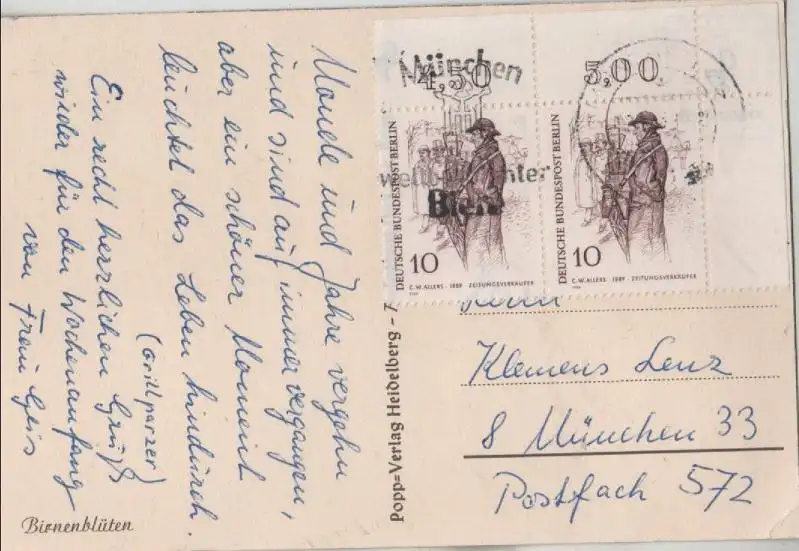 Monde und Jahre vergehn
und sind auf immer vergangen,
aber ein schöner Moment
leuchtet das Leben hindurch.
(Grillparzer)
Ein recht herzlichen Gruß
wieder für den Wochenanfang
von Frau Geis
Birnenblüten
Popp=Verlag Heidelberg -
München
4,50
5,00
Bier
DEUTSCHE BUNDESPOST BERLIN
10
C.W. ALLERS · 1889 · ZEITUNGSVERKÄUFER
DEUTSCHE BUNDESPOST BERLIN
10
C.W. ALLERS · 1889 · ZEITUNGSVERKÄUFER
Herrn
Klemens Lenz
8 München 33
Postfach 572